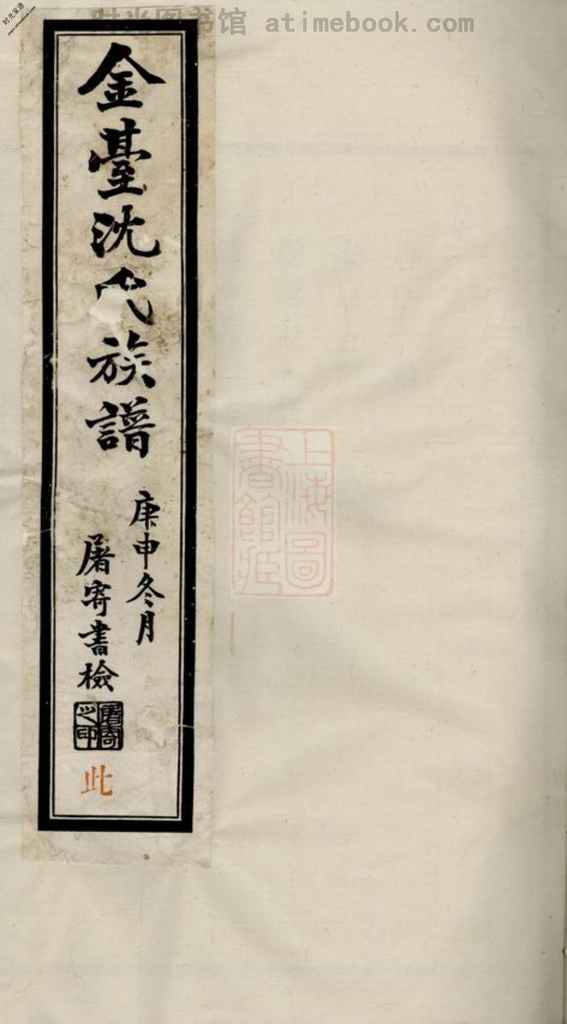 时光图书馆 atimebook.com
金臺沈氏族譜
庚申冬月
屠寄書檢
屠寄之印
此
上海圖書館藏